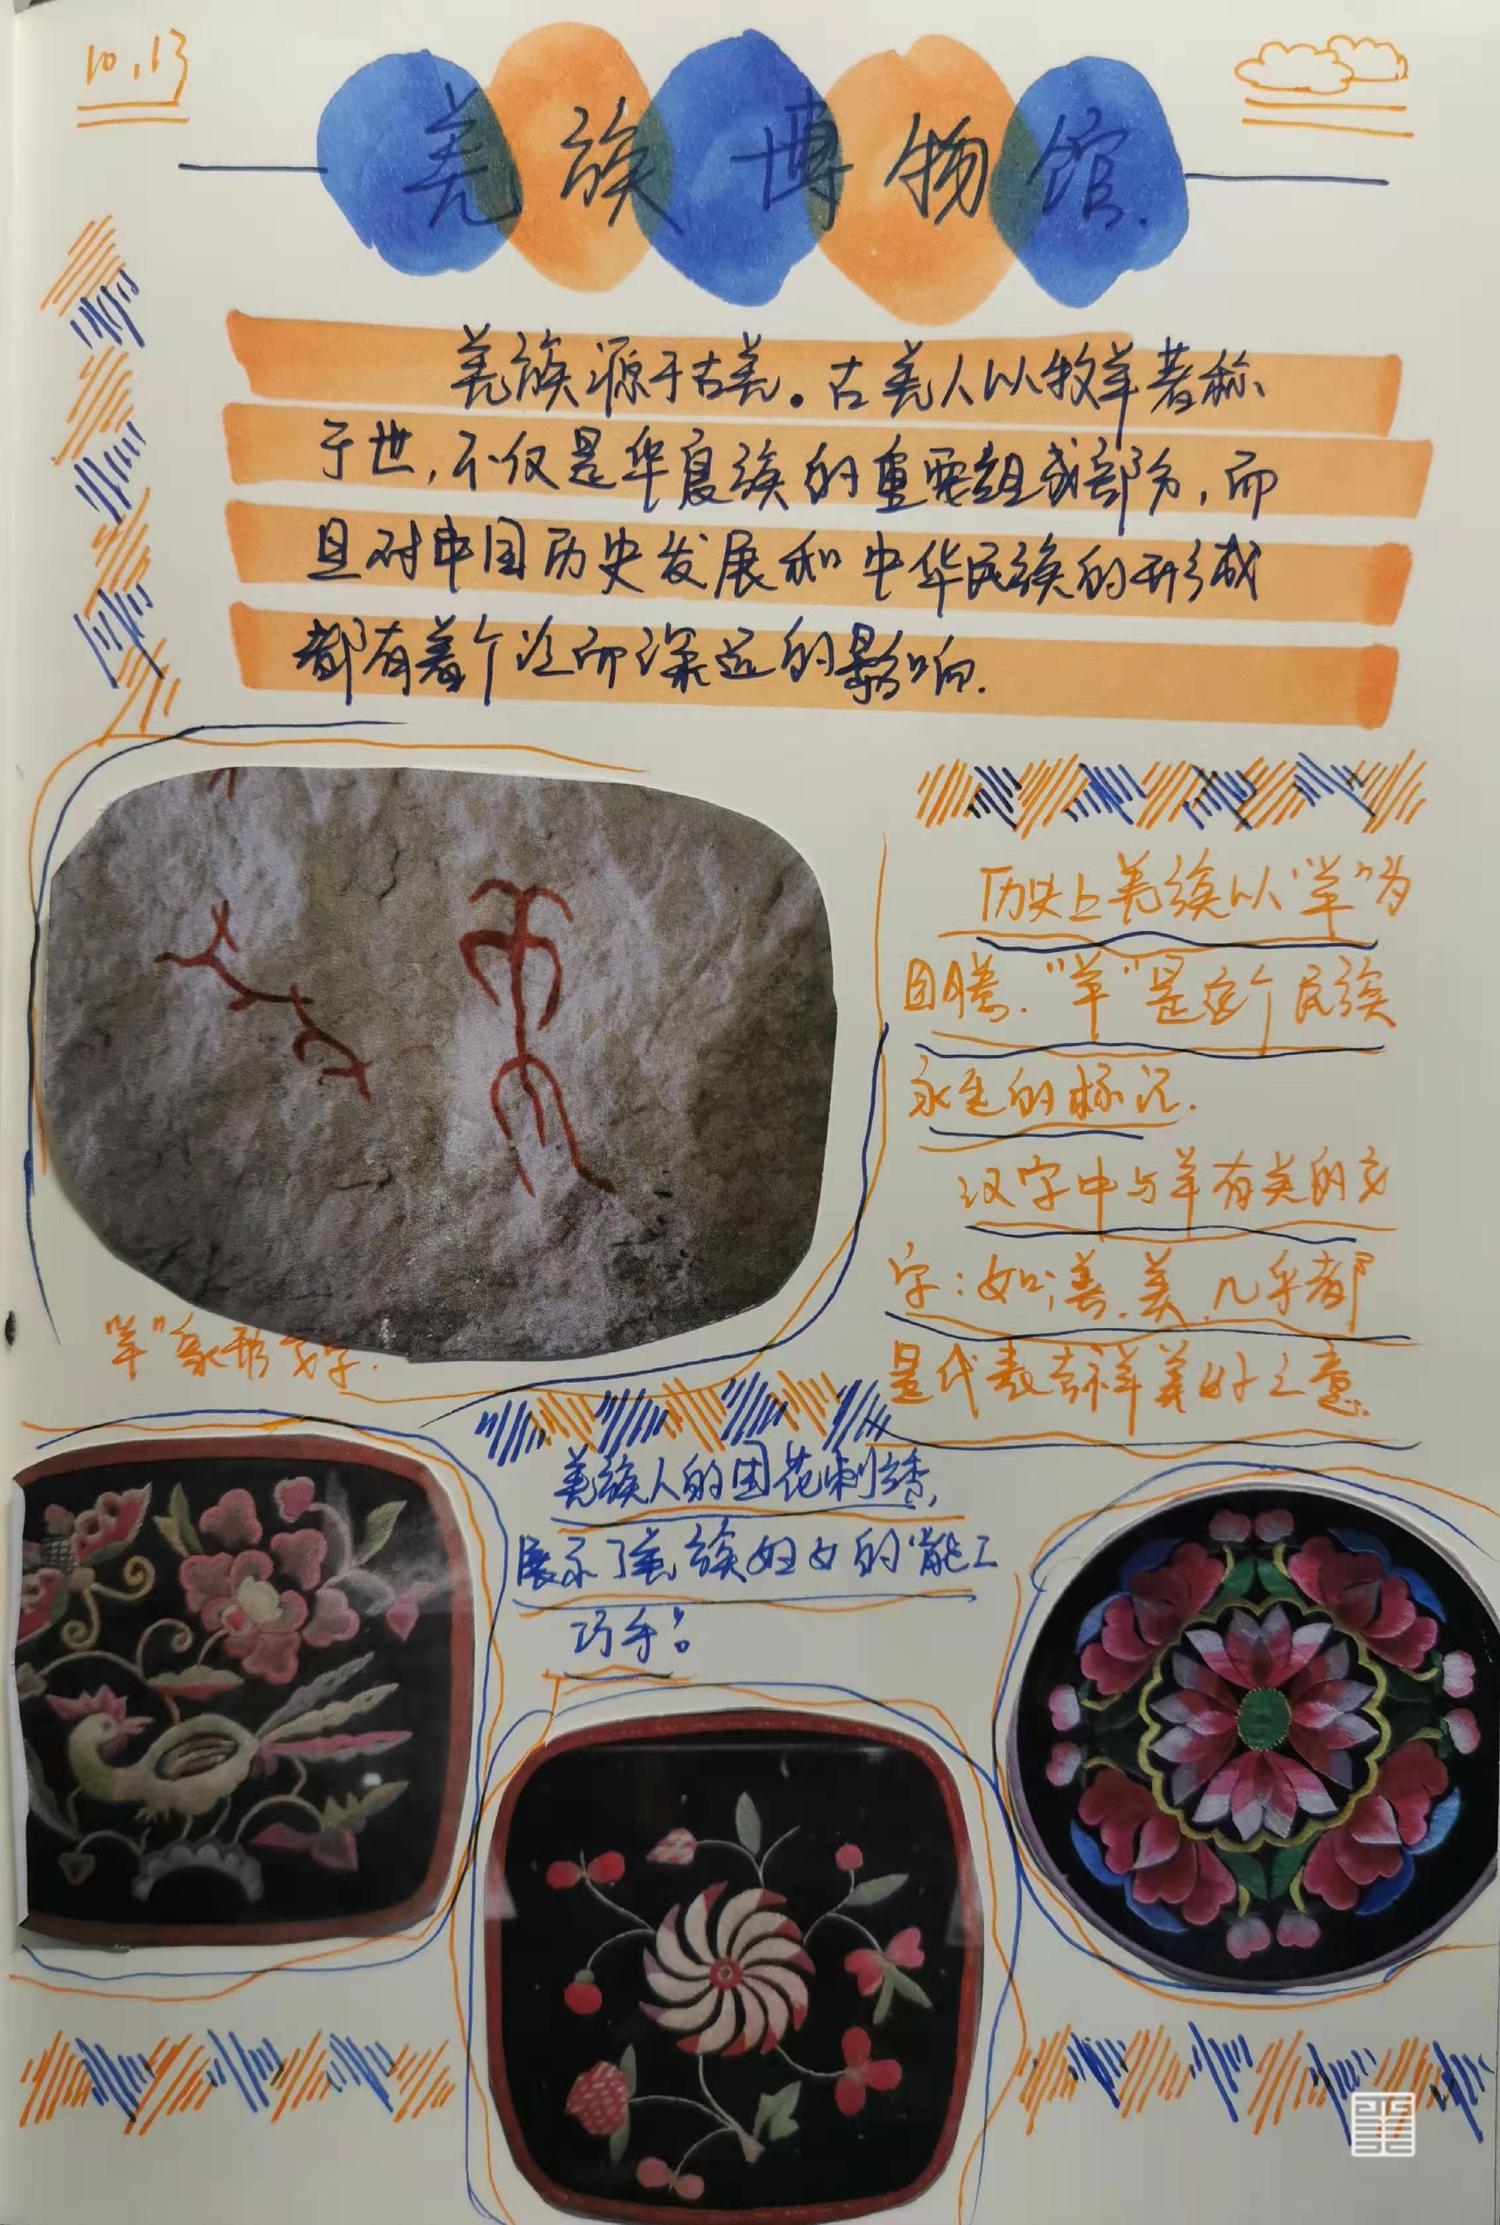 10.13
羌族博物馆.
羌族源于古羌。古羌人以牧羊著称
于世,不仅是华夏族的重要组成部分,而
且对中国历史发展和中华民族的形成
都有着个泛而深远的影响.
历史上羌族以"羊"为
图腾."羊"是这个民族
永远的标记.
汉字中与羊有关的文
字:如:善.美.几乎都
是代表吉祥美好之意.
"羊"象形文字.
羌族人的团花刺绣,
展示了羌族妇女的"能工
巧手"。